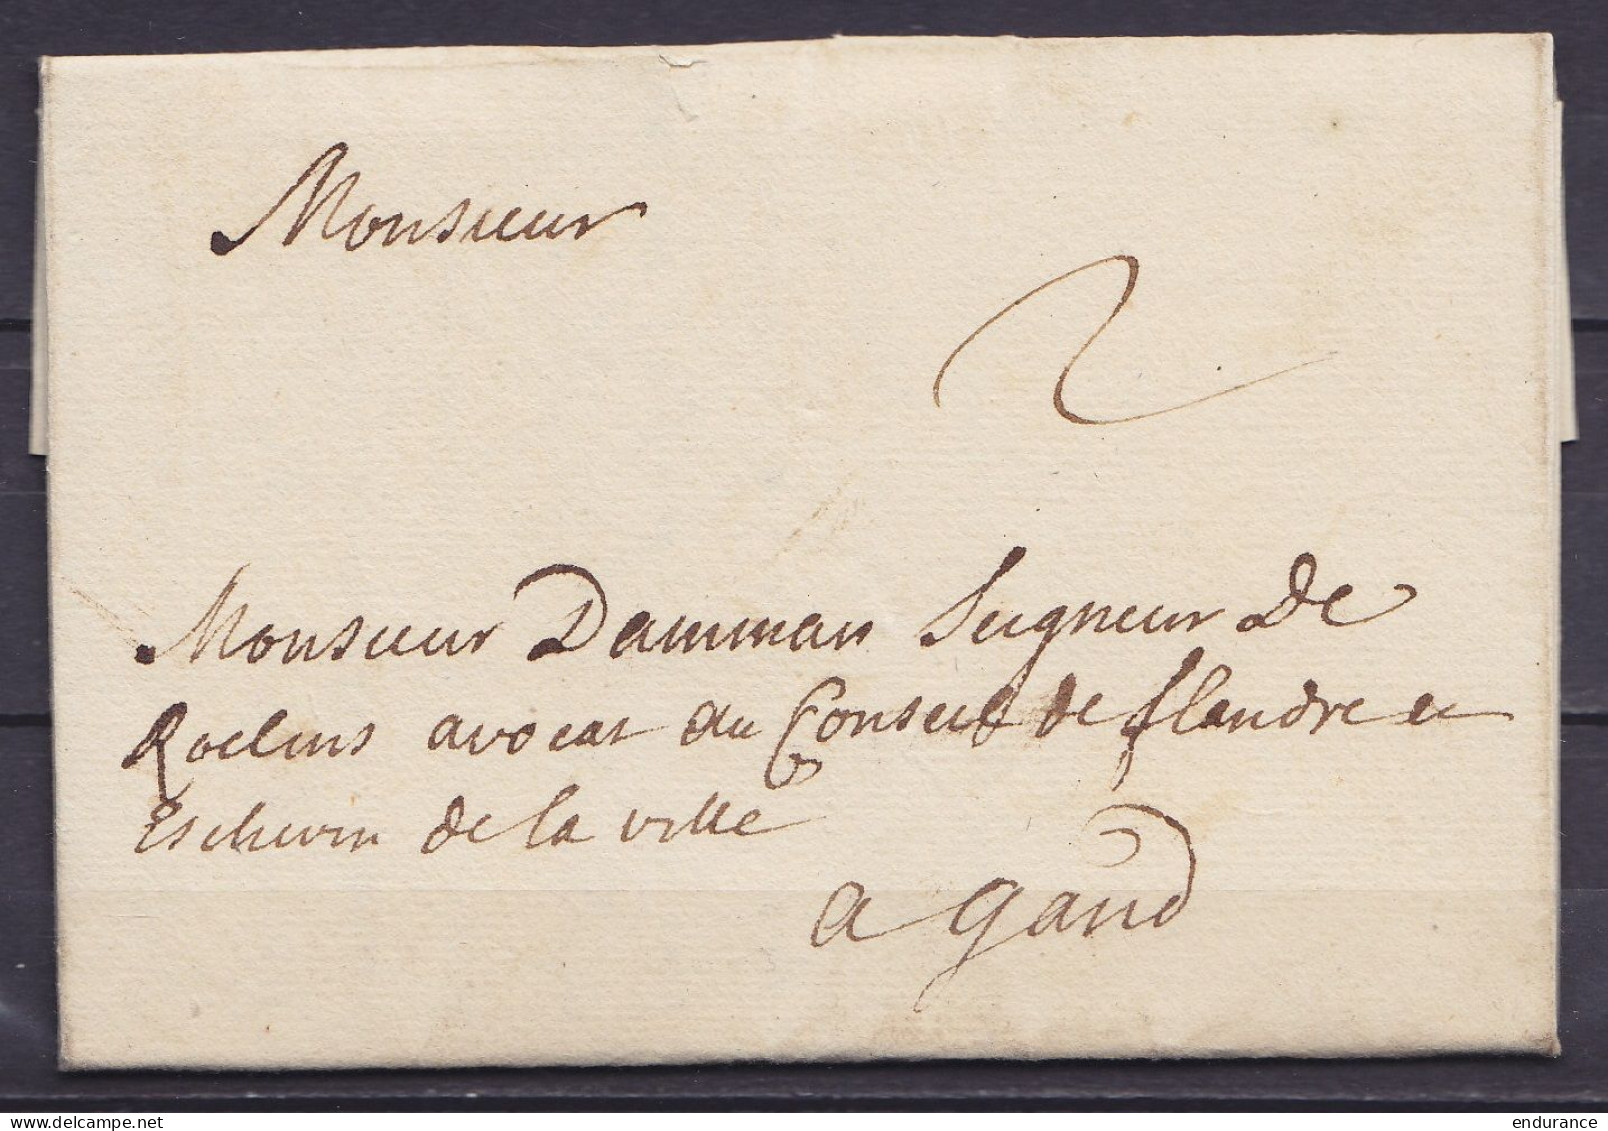 Monsieur
2
Monsieur Damman Seigneur de
Roelins avocat du Conseil de flandre et
Eschevin de la ville
a gand
endurance
delcampe.net